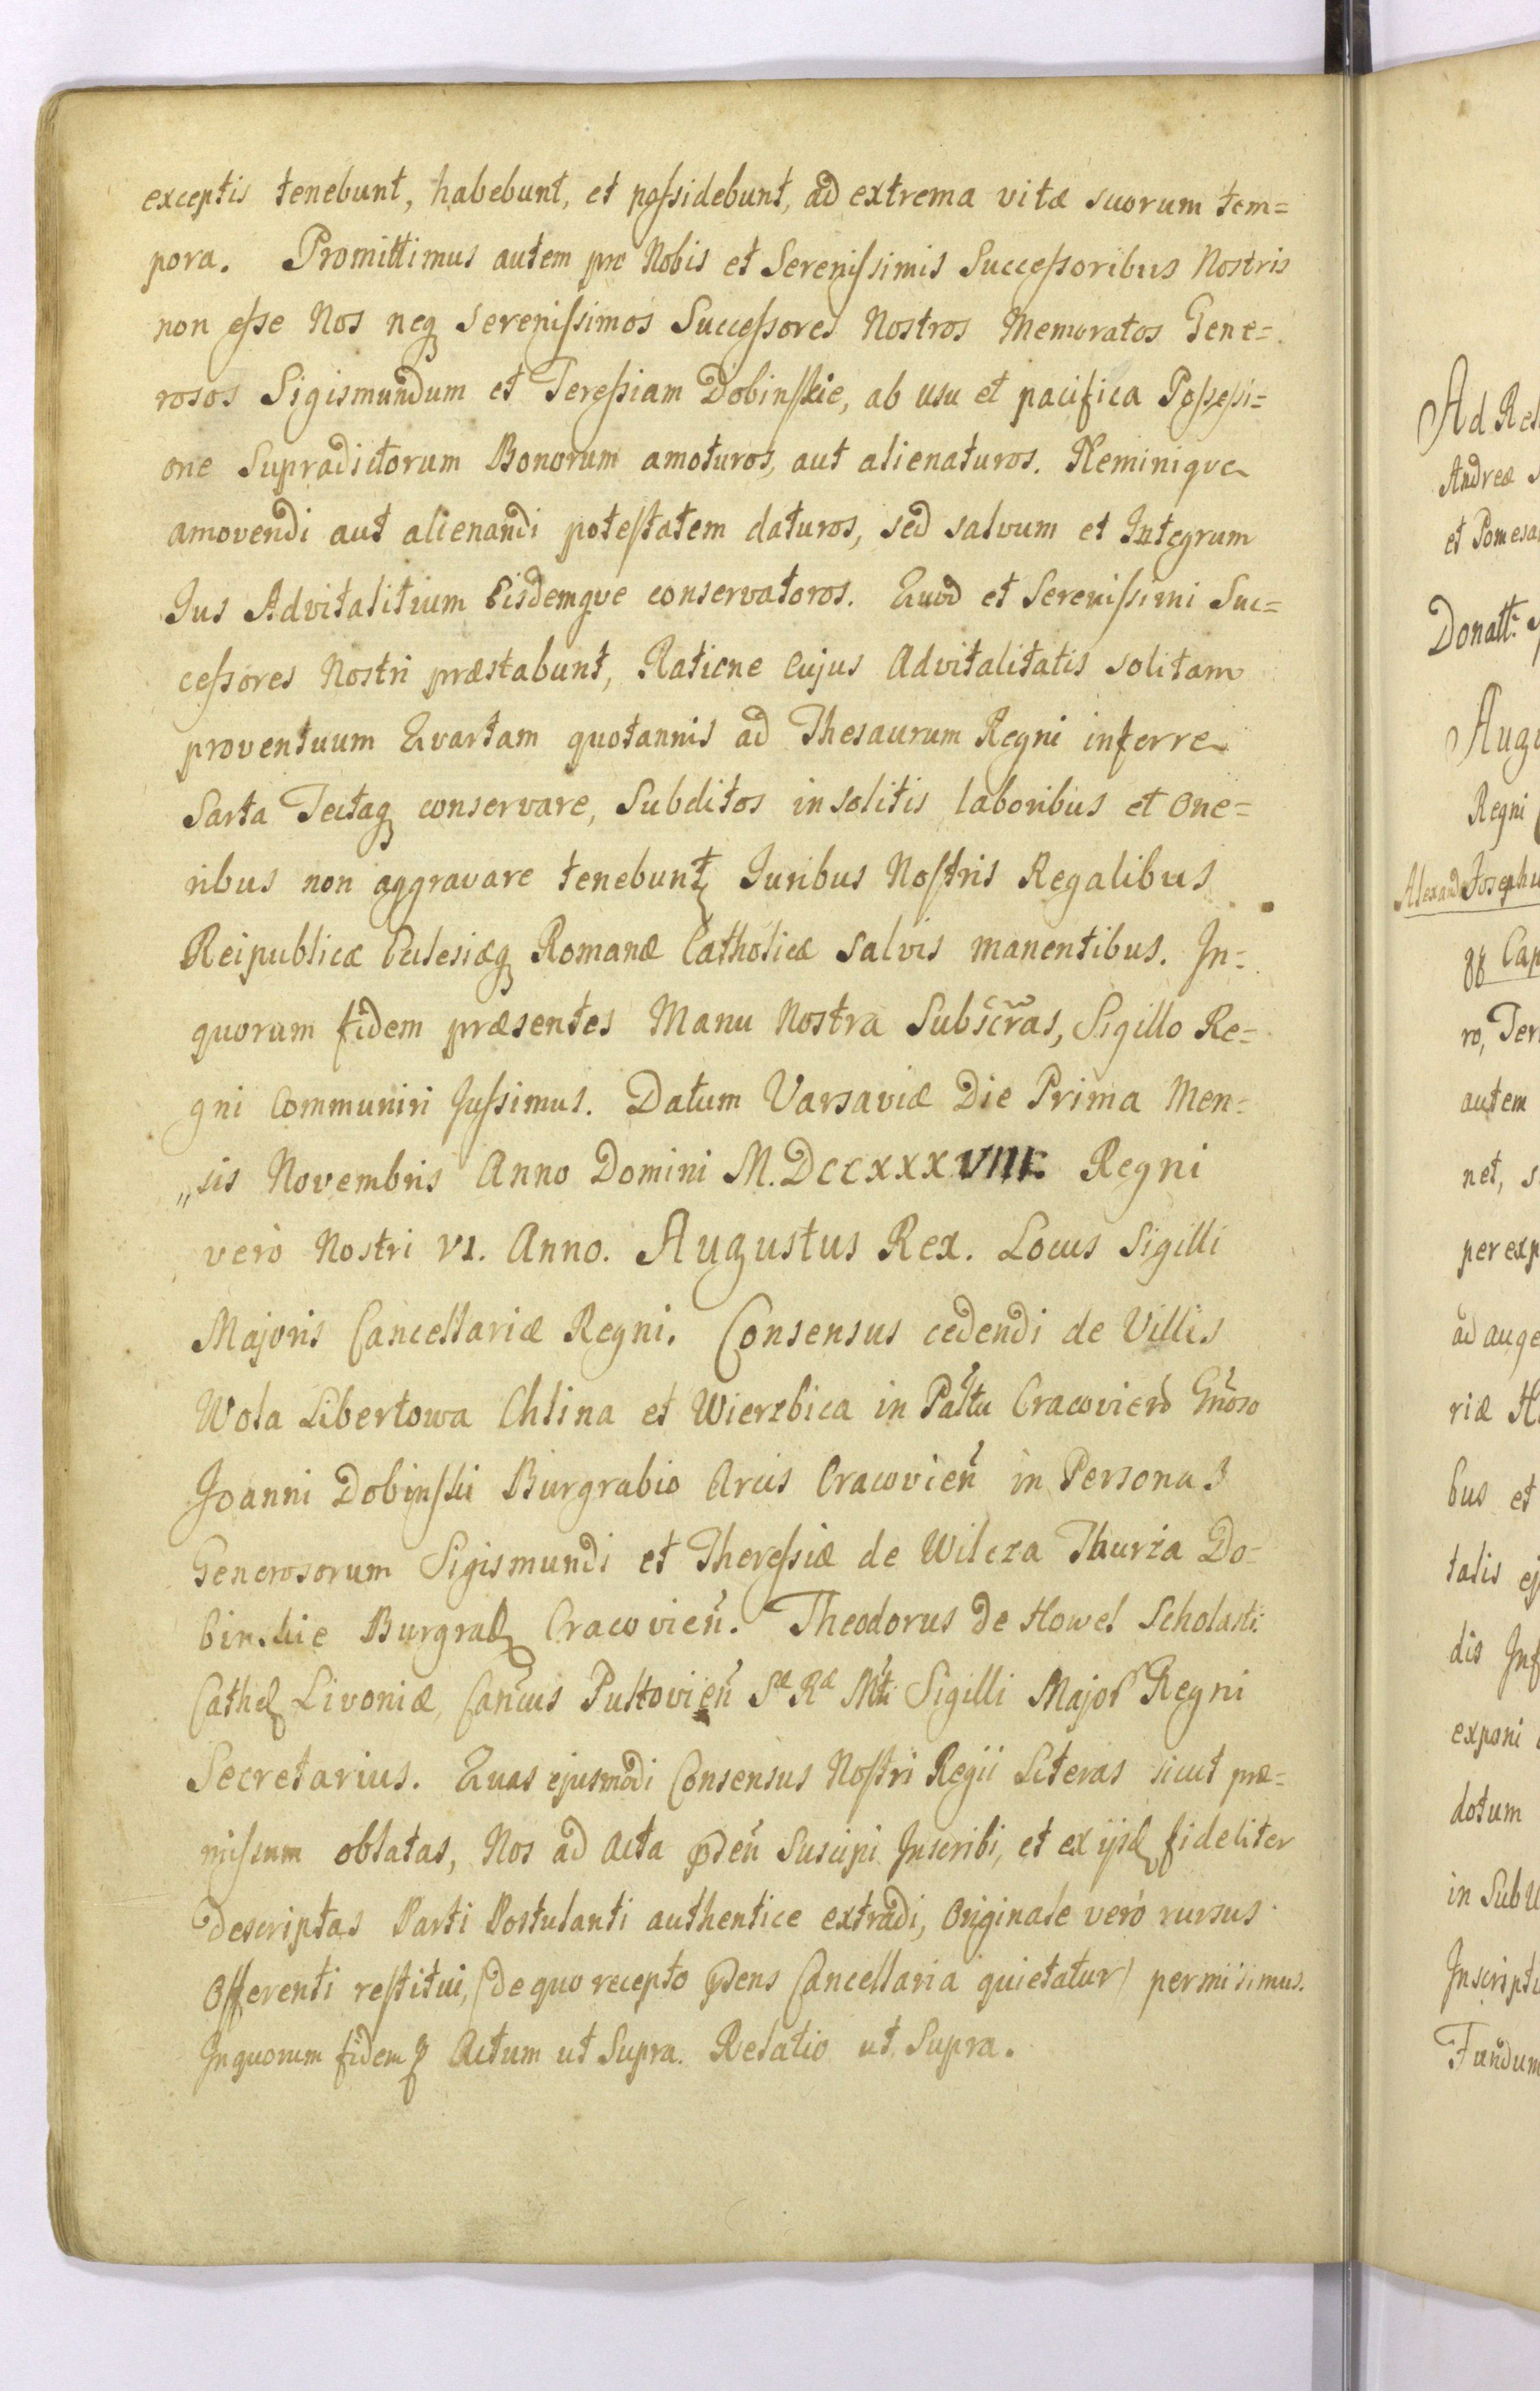 exceptis tenebunt, habebunt, et poſsidebunt, ad extrema vitæ suorum tem=
pora. Promittimus autem pro Nobis et Sereniſsimis Succeſsoribus Nostris
non eſse Nos neq Sereniſsimos Succeſsores Nostros Memoratos Gene=
rosos Sigismundum et Tereſsiam Dobinſkie, ab usu et pacifica Poſseſsi=
one Supradictorum Bonorum amoturos, aut alienaturos. Neminique
amovendi aut alienandi poteſtatem daturos, sed salvum et Integrum
Jus Advitalitium Eisdemque conservatoros. Quod et Sereniſsimi Suc=
ceſsores Nostri præstabunt, Ratione Cujus Advitalitatis solitam
proventuum Quartam quotannis ad Thesaurum Regni inferre
Sarta Tectaq conservare, Subditos insolitis laboribus et One=
ribus non aggravare tenebunt Juribus Noſtris Regalibus
Reipublicæ Ecclesiæq Romanæ Catholicæ Salvis manentibus. In=
quorum fidem præsentes Manu Nostra Subscr̃as, Sigillo Re=
gni Communiri Juſsimus. Datum Varsaviæ Die Prima Men=
„sis Novembris Anno Domini M.DCCXXXVIII. Regni
verò Nostri VI. Anno. Augustus Rex. Locus Sigilli
Majoris Cancellariæ Regni. Consensus cedendi de Villis
Wola Libertowa Chlina et Wierzbica in Pal̃tu Cracovien̄ Gn̄oso
Joanni Dobinſki Burgrabio Arcis Cracovien̄ in Personas
Generosorum Sigismundi et Thereſsiæ de Wilcza Thurza Do=
binskie Burgrab Cracovien̄. Theodorus de Howel Scholasti:
Cathed Livoniæ, Can̄cus Pultovien̄ Sæ Ræ Mt̄i Sigilli Major Regni
Secretarius. Quas ejusmodi Consensus Noſtri Regii Literas sicut præ=
miſsum oblatas, Nos ad Acta p̃sen̄ Suscipi Inscribi, et ex ijsd fideliter
descriptas Parti Postulanti authentice extradi, Originale verò rursus
Offerenti reſtitui, (de quo recepto p̃sens Cancellaria quietatur) permisimus.
Inquorum fidem Actum ut Supra. Relatio ut Supra.
Andreæ
Donatt:
Augu
Regni
Josephu
ro,
autem
net,
ad auge
riæ
bus et
talis
dis
exponi
dotum
Fundum